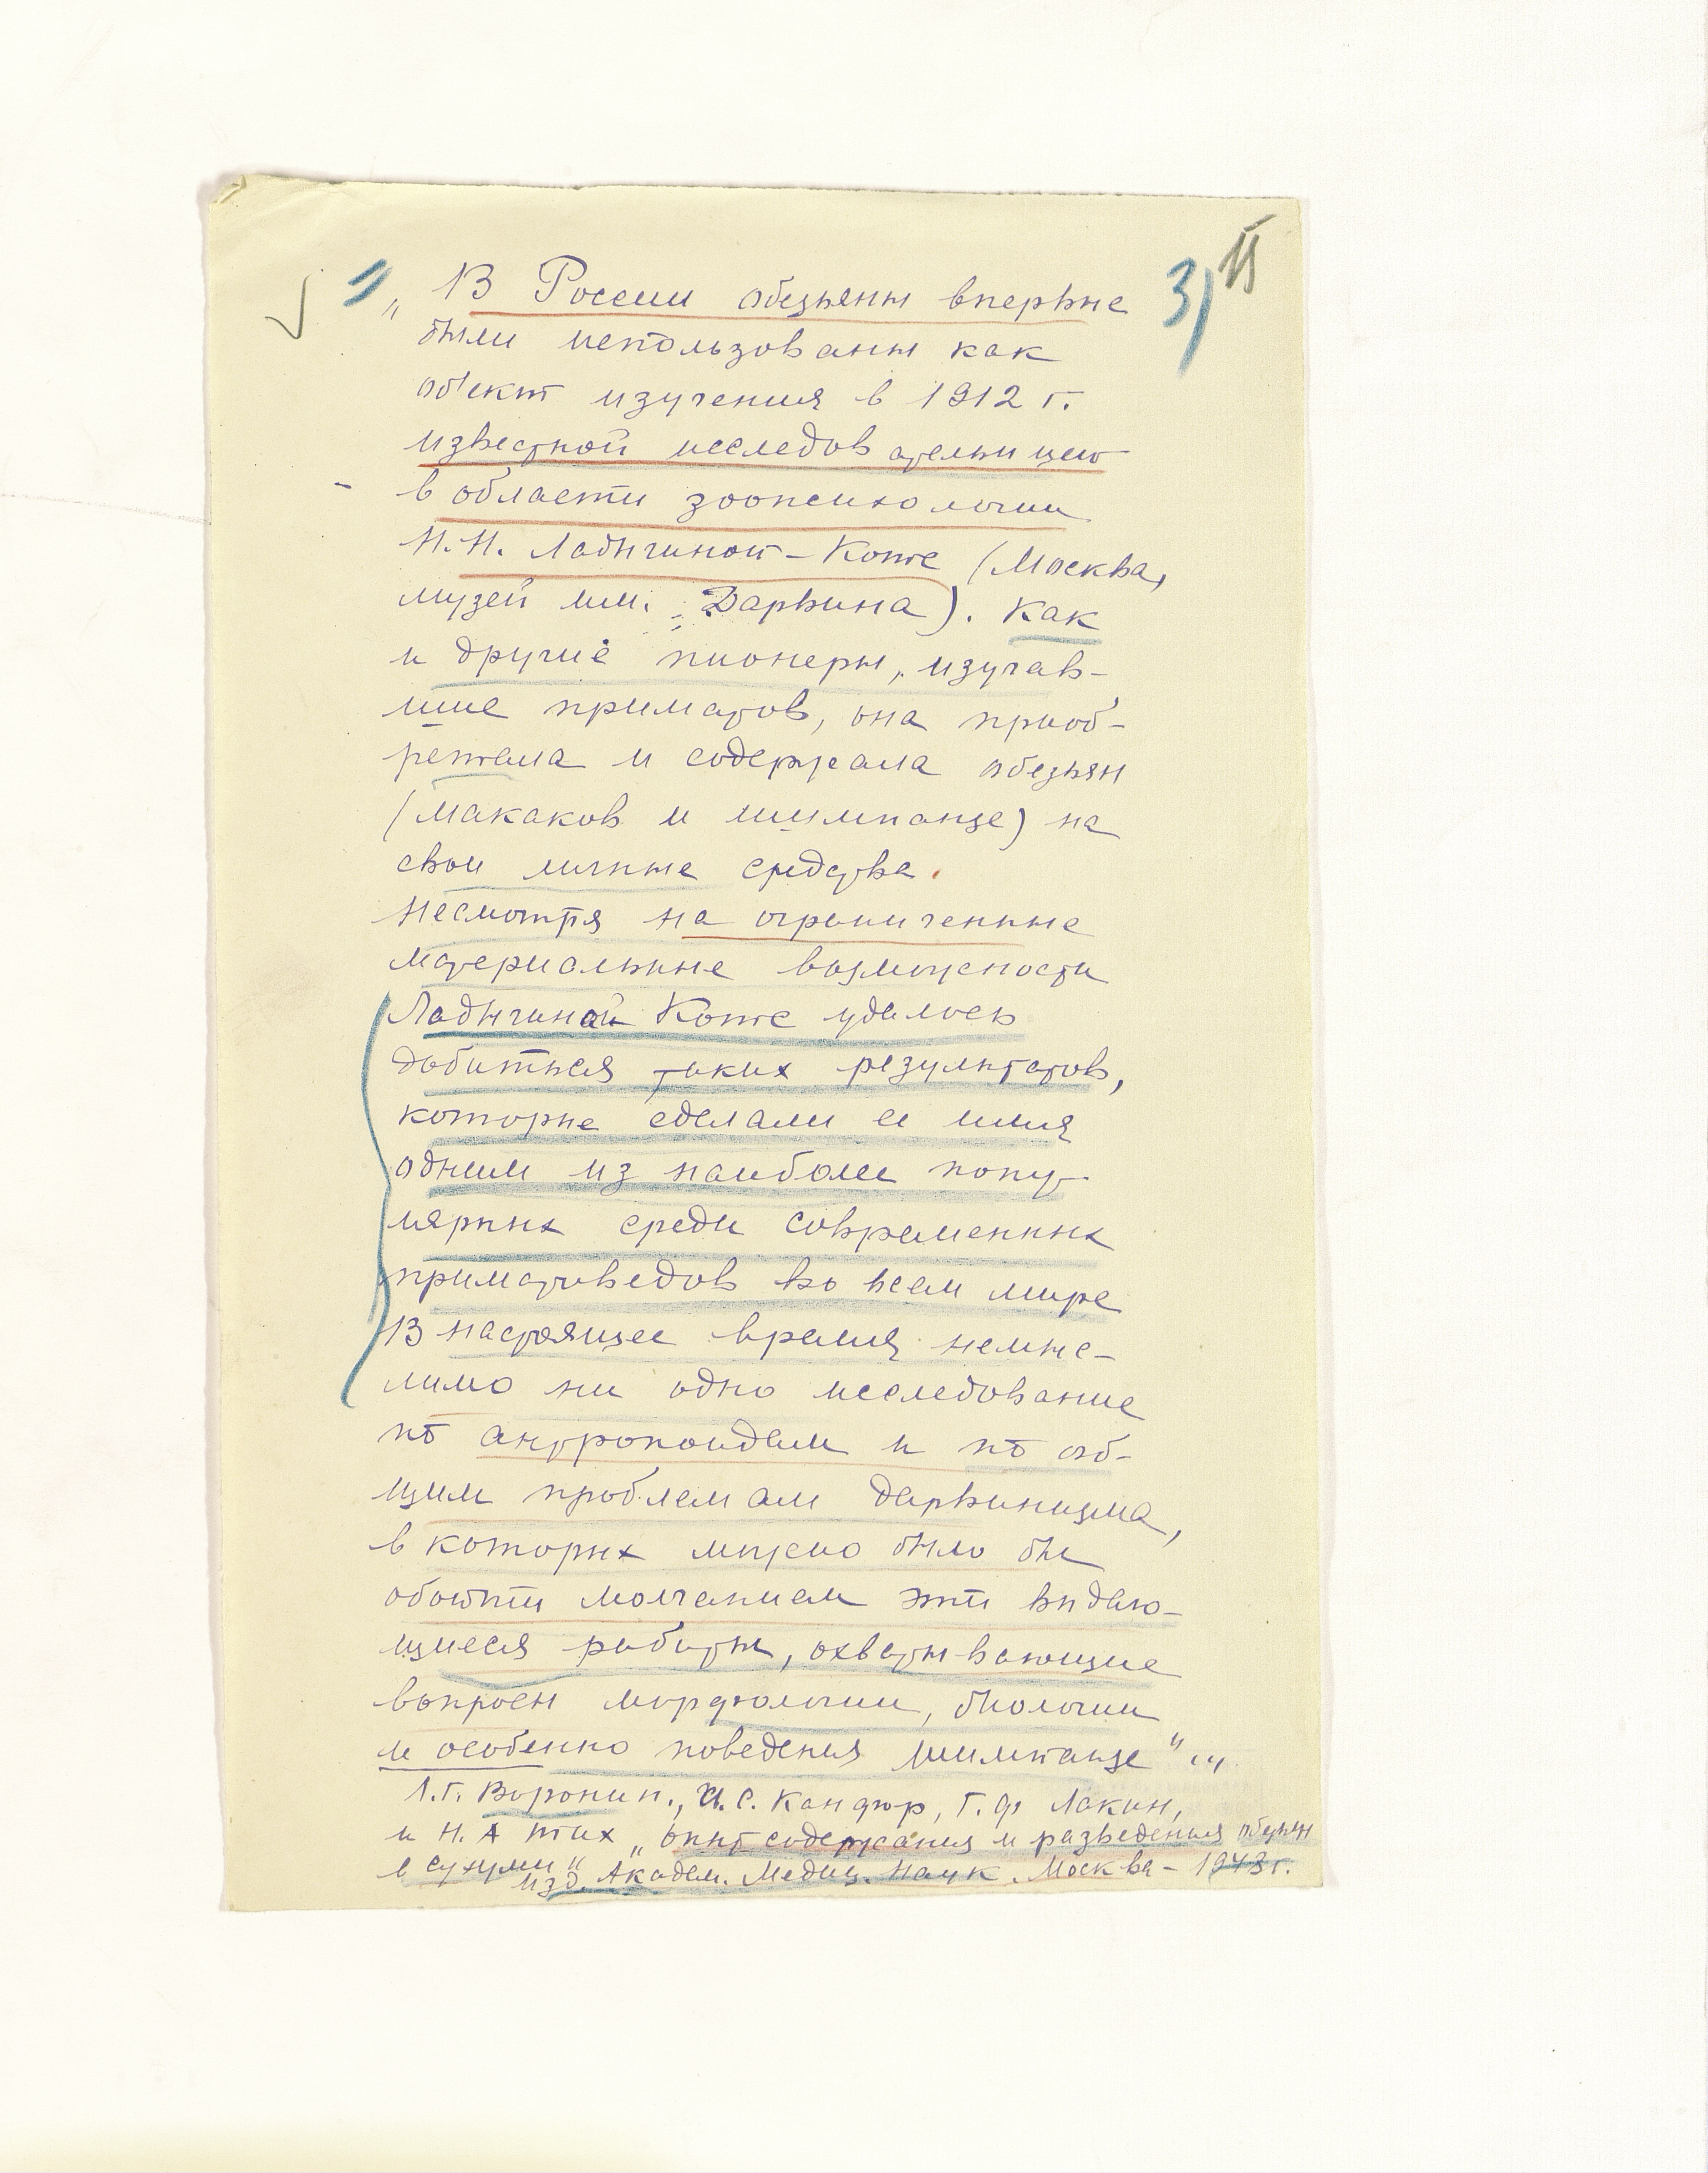 3) 11
„В России обезьяны впервые
были использованы как
об'ект изучения в 1912 г.
известной исследовательницею
в области зоопсихологии
Н.Н. Ладыгиной-Котс (Москва,
музей им. Дарвина). Как
и другие пионеры, изучав-
шие приматов, она приоб-
ретала и содержала обезьян
(макаков и шимпанзе) на
свои личные средства.
Несмотря на ограниченные
материальные возможности
Ладыгиной Котс удалось
добиться таких результатов,
которые сделали ее имя
одним из наиболее попу-
лярных среди современных
приматоведов во всем мире
В настоящее время немыс-
лимо ни одно исследование
по антропоидам и по об-
щим проблемам дарвинизма,
в которых можно было бы
обойти молчанием эти выдаю-
щиеся работы, охватывающие
вопросы морфологии, биологии
и особенно поведения шимпанзе"...
Л.Г. Воронин., И.С. Канфор, Г.Ф Лакин,
и Н.А Тих „Опыт содержания и разведения обезьян
в Сухуми"
изд. Академ. Медиц. Наук. Москва - 1948 г.